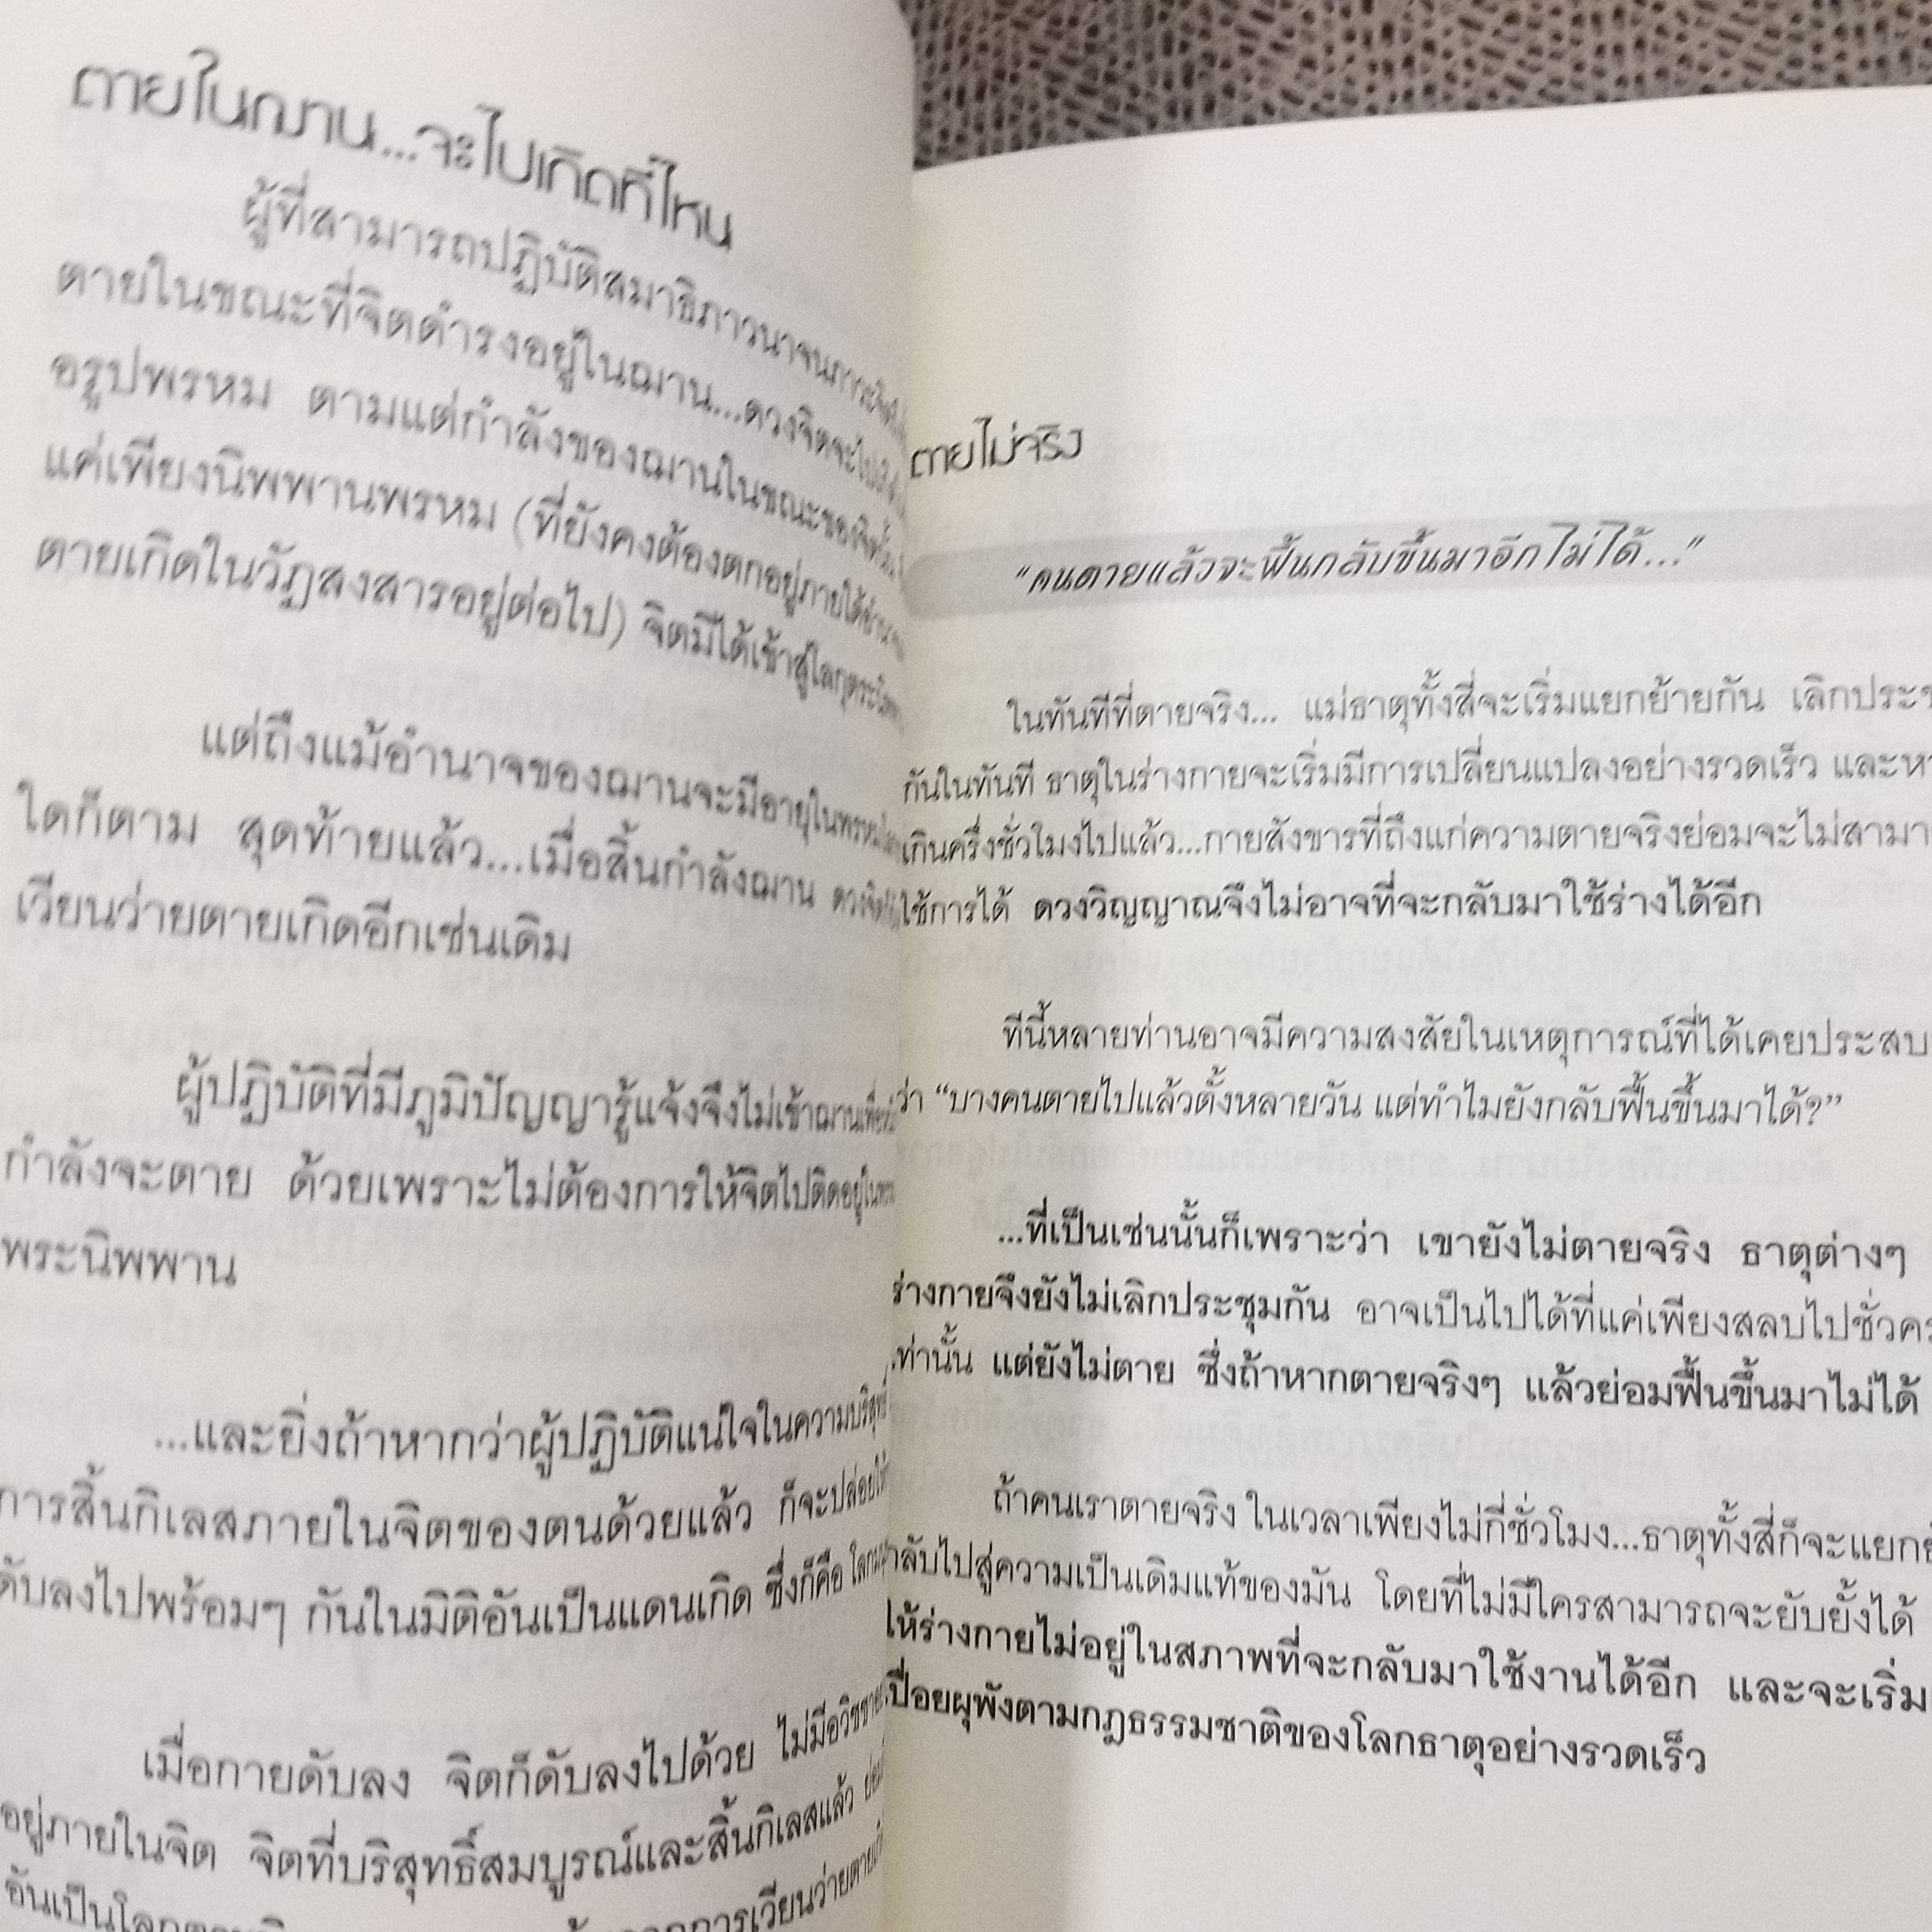 ตายในฌาน...จะไปเกิดที่ไหน
ผู้ที่สามารถปฏิบัติสมาธิภาวนาจน
ตายในขณะที่จิตดำรงอยู่ในฌาน...ดวงจิตจะไป
อรูปพรหม ตามแต่กำลังของฌานในขณะ
แค่เพียงนิพพานพรหม (ที่ยังคงต้องตกอยู่ภายใต้
ตายเกิดในวัฏสงสารอยู่ต่อไป) จิตมิได้เข้าสู่
แต่ถึงแม้อำนาจของฌานจะมีอายุใน
ใดก็ตาม สุดท้ายแล้ว...เมื่อสิ้นกำลังฌาน
เวียนว่ายตายเกิดอีกเช่นเดิม
ผู้ปฏิบัติที่มีภูมิปัญญารู้แจ้งจึงไม่เข้าฌาน
กำลังจะตาย ด้วยเพราะไม่ต้องการให้จิตไปติดอยู่ใน
พระนิพพาน
...และยิ่งถ้าหากว่าผู้ปฏิบัติแน่ใจในความบริสุทธิ์
การสิ้นกิเลสภายในจิตของตนด้วยแล้ว ก็จะปล่อยให้
ดับลงไปพร้อมๆ กันในมิติอันเป็นแดนเกิด ซึ่งก็คือ
เมื่อกายดับลง จิตก็ดับลงไปด้วย ไม่มีอวิชชา
อยู่ภายในจิต จิตที่บริสุทธิ์สมบูรณ์และสิ้นกิเลสแล้ว
อันเป็น การเวียนว่ายตาย
ตายไม่จริง
"คนตายแล้วจะฟื้นกลับขึ้นมาอีกไม่ได้..."
ในทันทีที่ตายจริง... แม่ธาตุทั้งสี่จะเริ่มแยกย้ายกัน เลิกประช
กันในทันที ธาตุในร่างกายจะเริ่มมีการเปลี่ยนแปลงอย่างรวดเร็ว และห
เกินครึ่งชั่วโมงไปแล้ว...กายสังขารที่ถึงแก่ความตายจริงย่อมจะไม่สามา
ใช้การได้ ดวงวิญญาณจึงไม่อาจที่จะกลับมาใช้ร่างได้อีก
ทีนี้หลายท่านอาจมีความสงสัยในเหตุการณ์ที่ได้เคยประสบ
ว่า "บางคนตายไปแล้วตั้งหลายวัน แต่ทำไมยังกลับฟื้นขึ้นมาได้?"
...ที่เป็นเช่นนั้นก็เพราะว่า เขายังไม่ตายจริง ธาตุต่างๆ
ร่างกายจึงยังไม่เลิกประชุมกัน อาจเป็นไปได้ที่แค่เพียงสลบไปชั่วคร
เท่านั้น แต่ยังไม่ตาย ซึ่งถ้าหากตายจริงๆ แล้วย่อมฟื้นขึ้นมาไม่ได้
ถ้าคนเราตายจริง ในเวลาเพียงไม่กี่ชั่วโมง...ธาตุทั้งสี่ก็จะแยก
กลับไปสู่ความเป็นเดิมแท้ของมัน โดยที่ไม่มีใครสามารถจะยับยั้งได้
ให้ร่างกายไม่อยู่ในสภาพที่จะกลับมาใช้งานได้อีก และจะเริ่ม
เปื่อยผุพังตามกฎธรรมชาติของโลกธาตุอย่างรวดเร็ว